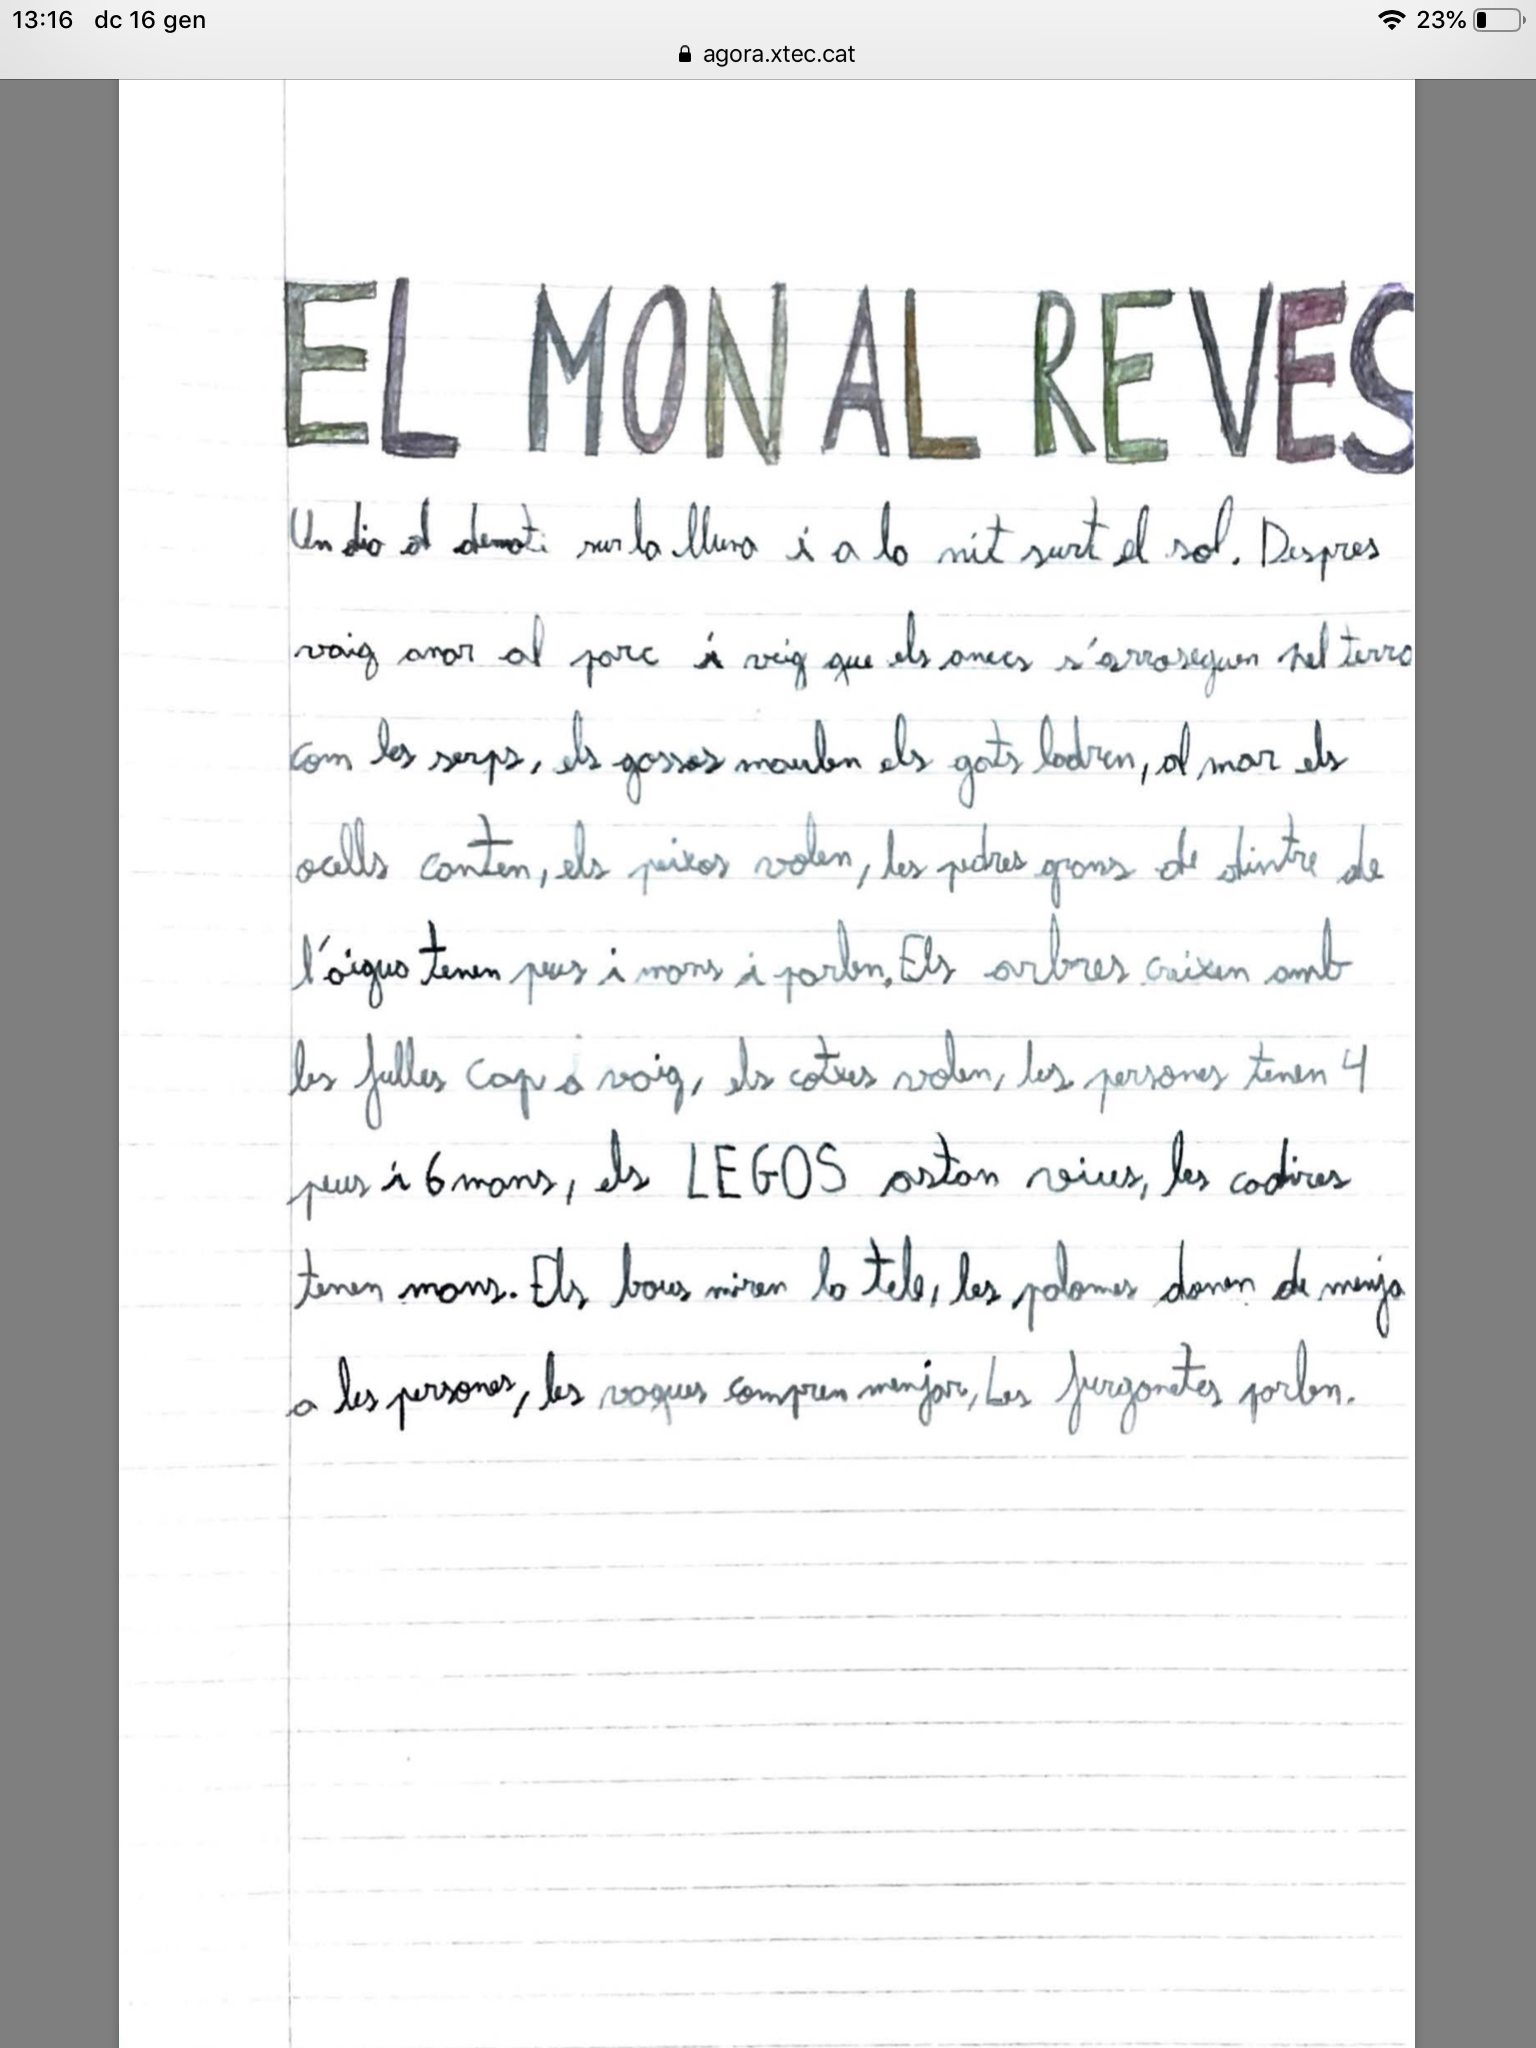 13:16 dc 16 gen 23%
agora.xtec.cat
EL MON AL REVES
Un dia al demati sur la lluna i a la nit surt el sol. Despres
vaig anar al parc i veig que els anecs s'arroseguen pel terra
com les serps, els gossos maulen els gats ladren, al mar els
ocells canten, els peixos volen, les pedres grans de dintre de
l'aigua tenen peus i mans i parlen. Els arbres creixen amb
les fulles cap a vaig, els cotxes volen, les persones tenen 4
peus i 6 mans, els LEGOS astan vius, les cadires
tenen mans. Els bous miren la tele, les palomes donen de menja
a les persones, les vaques compren menjar, Les furgonetes parlen.